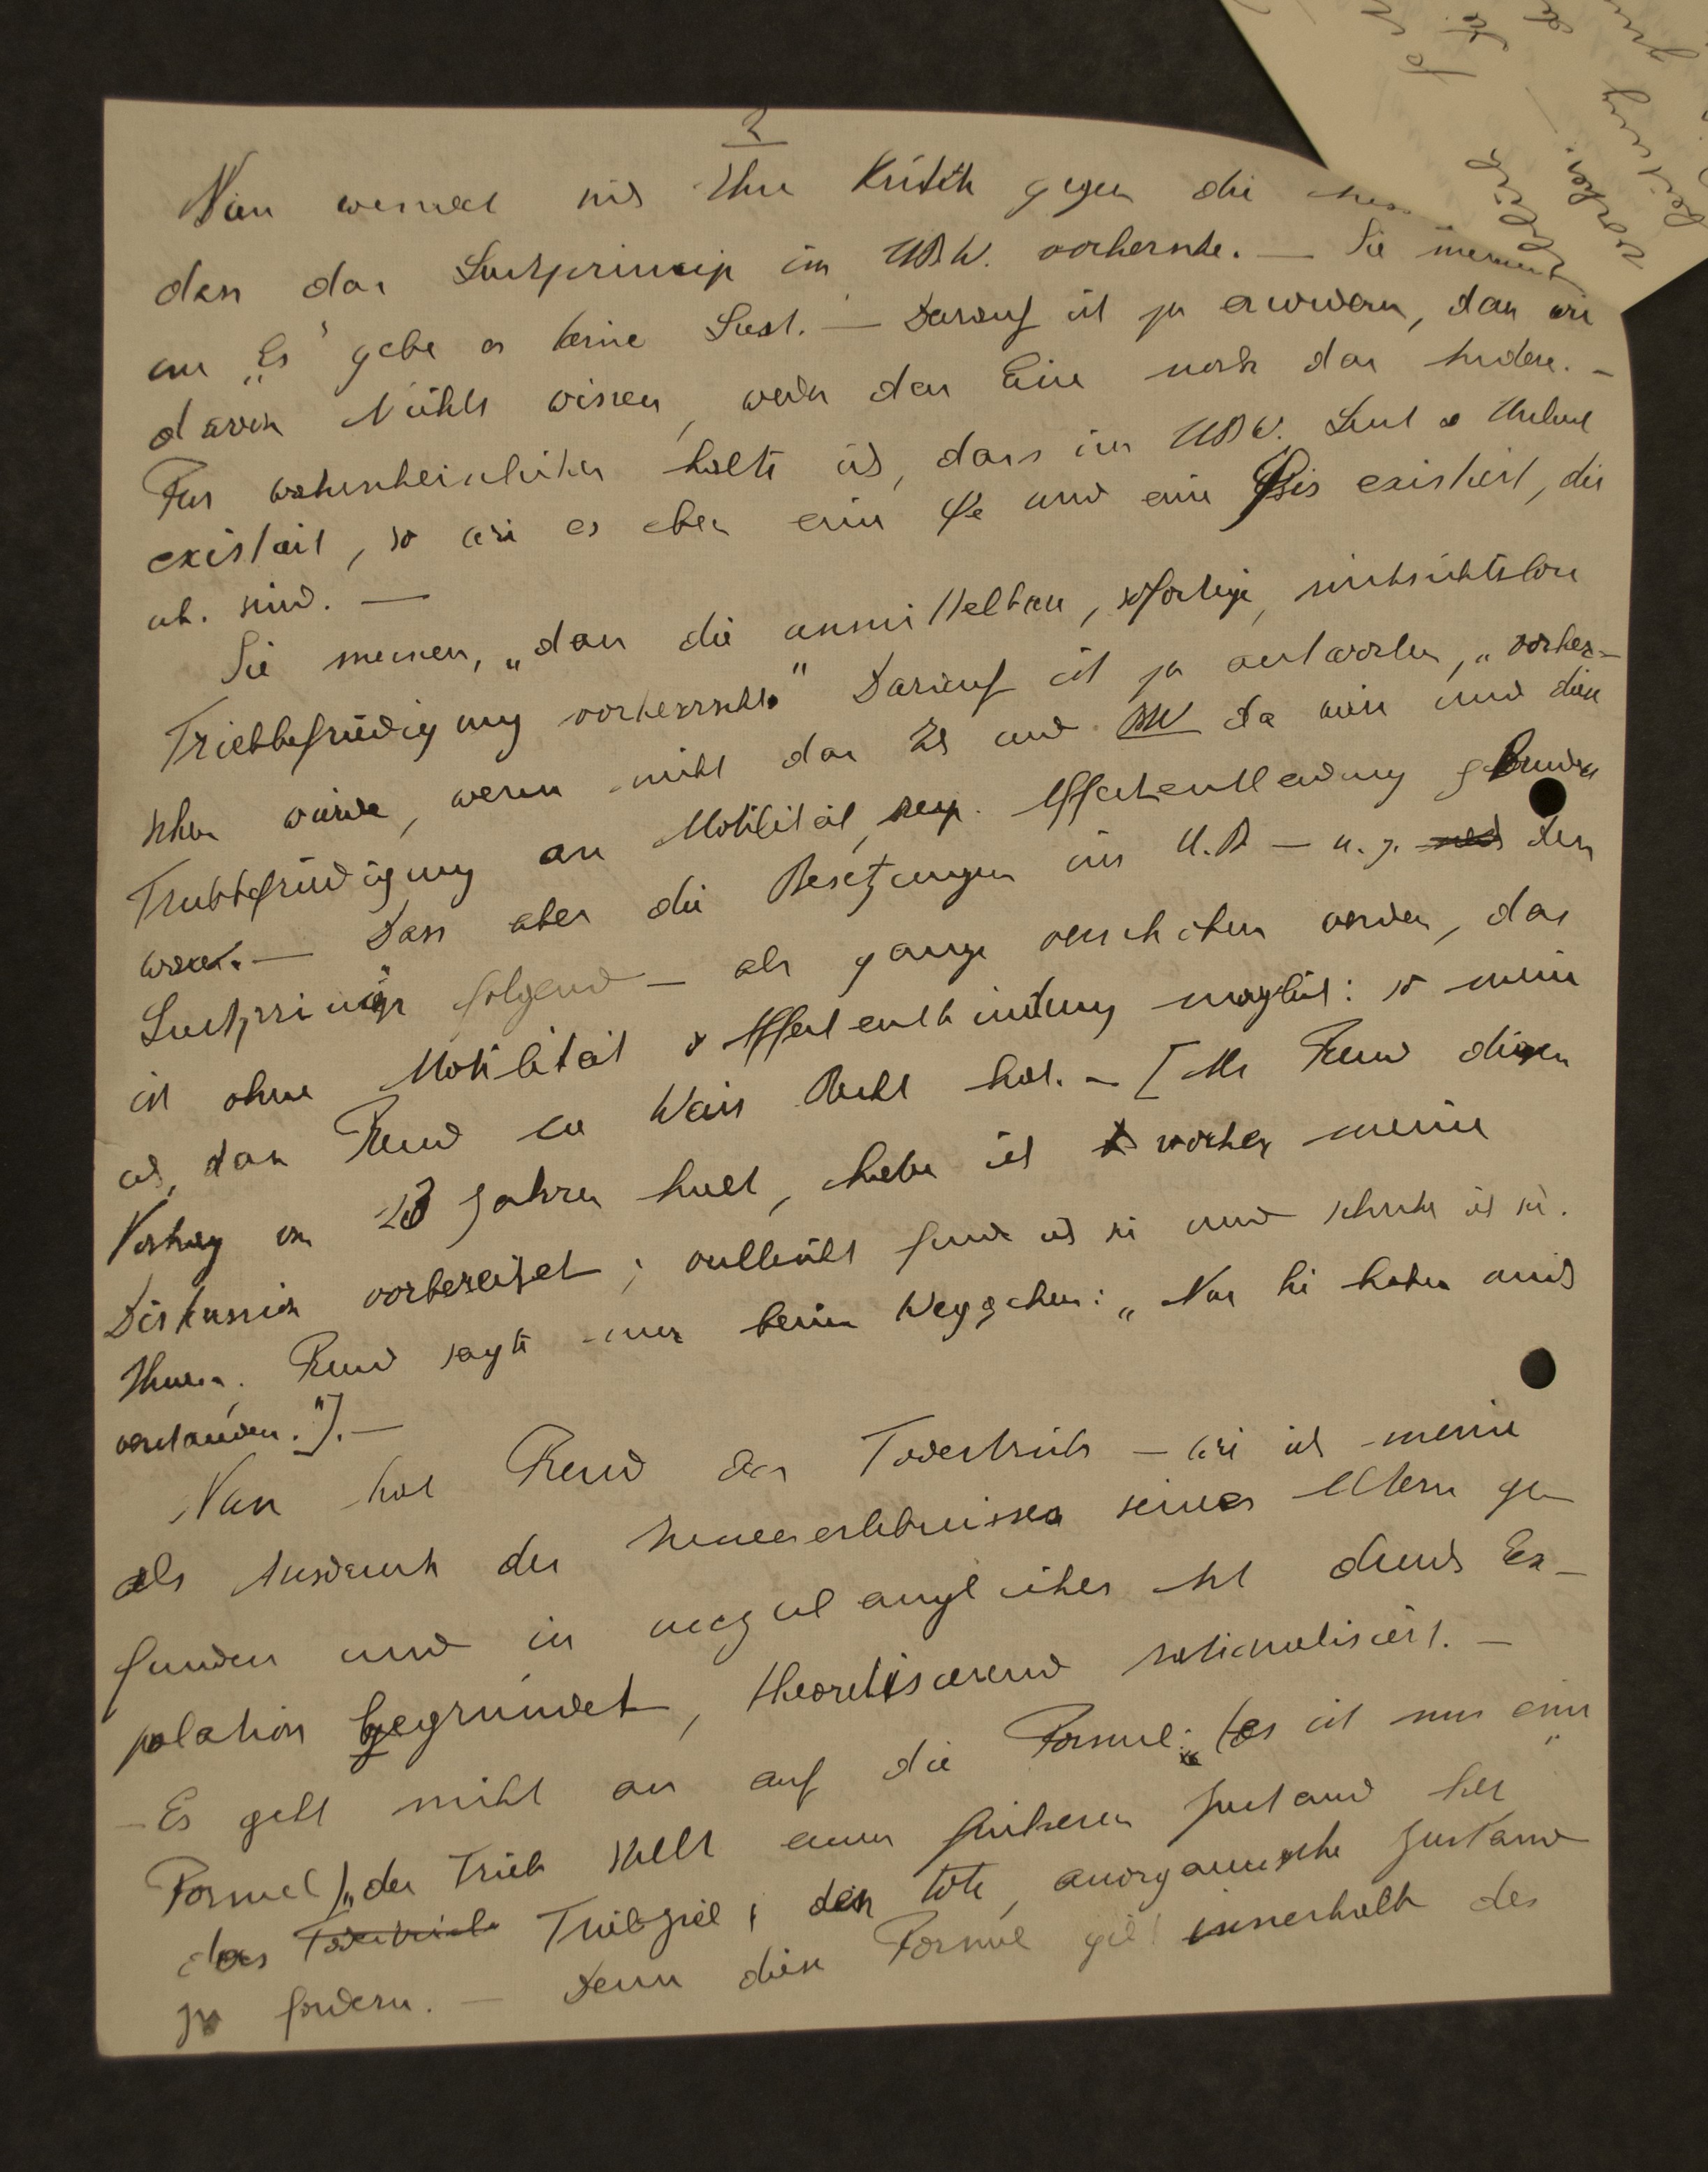 2
Nun wendet sich Ihre Kritik gegen die
dass das Lustprincip im UBW. vorherrsche. — Sie meinen
im „Es" gebe es keine Lust. — Darauf ist zu erwidern, dass wir
davon Nichts wissen, weder das Eine noch das Andere. —
Für wahrscheinlicher halte ich, dass im UBW. Lust & Unlust
existiert, so wie es eben eine und eine existiert, die
ub. sind. —
Sie meinen, „dass die unmittelbare, sofortige, rücksichtslose
Triebbefriedigung vorherrscht." Darauf ist zu antworten, „vorherr-
schen würde, wenn nicht das Es und BW da wäre und die
Triebbefriedigung an Motilität, resp. Affectentladung gebunden
wäre. — Dass aber die Besetzungen im U.B — u. z. dem
Lustprincip folgend — als ganze verschoben werden, das
ist ohne Motilität & Affectentbindung möglich: so meine
ich, dass Freud en Weiss Recht hat. — [Als Freud diesen
Vortrag vor 23 Jahren hielt, habe ich vorher meine
Diskussion vorbereitet; vielleicht finde ich sie und schicke ich sie.
Ihnen. Freud sagte mir beim Weggehen: „Nur Sie haben mich
verstanden."]. —
Nun hat Freud den Todestrieb — wie ich meine
als Ausdruck der seines Alterns ge-
funden und in unzulänglicher Art durch Ex-
polation begründet, theoretisierend rationalisiert. —
— Es geht nicht an auf die Formel: (es ist nur eine
Formel) „der Trieb stellt einen früheren Zustand her"
das Triebziel, den tote, anorganische Zustand
zu fordern. — Denn diese Formel gilt innerhalb des